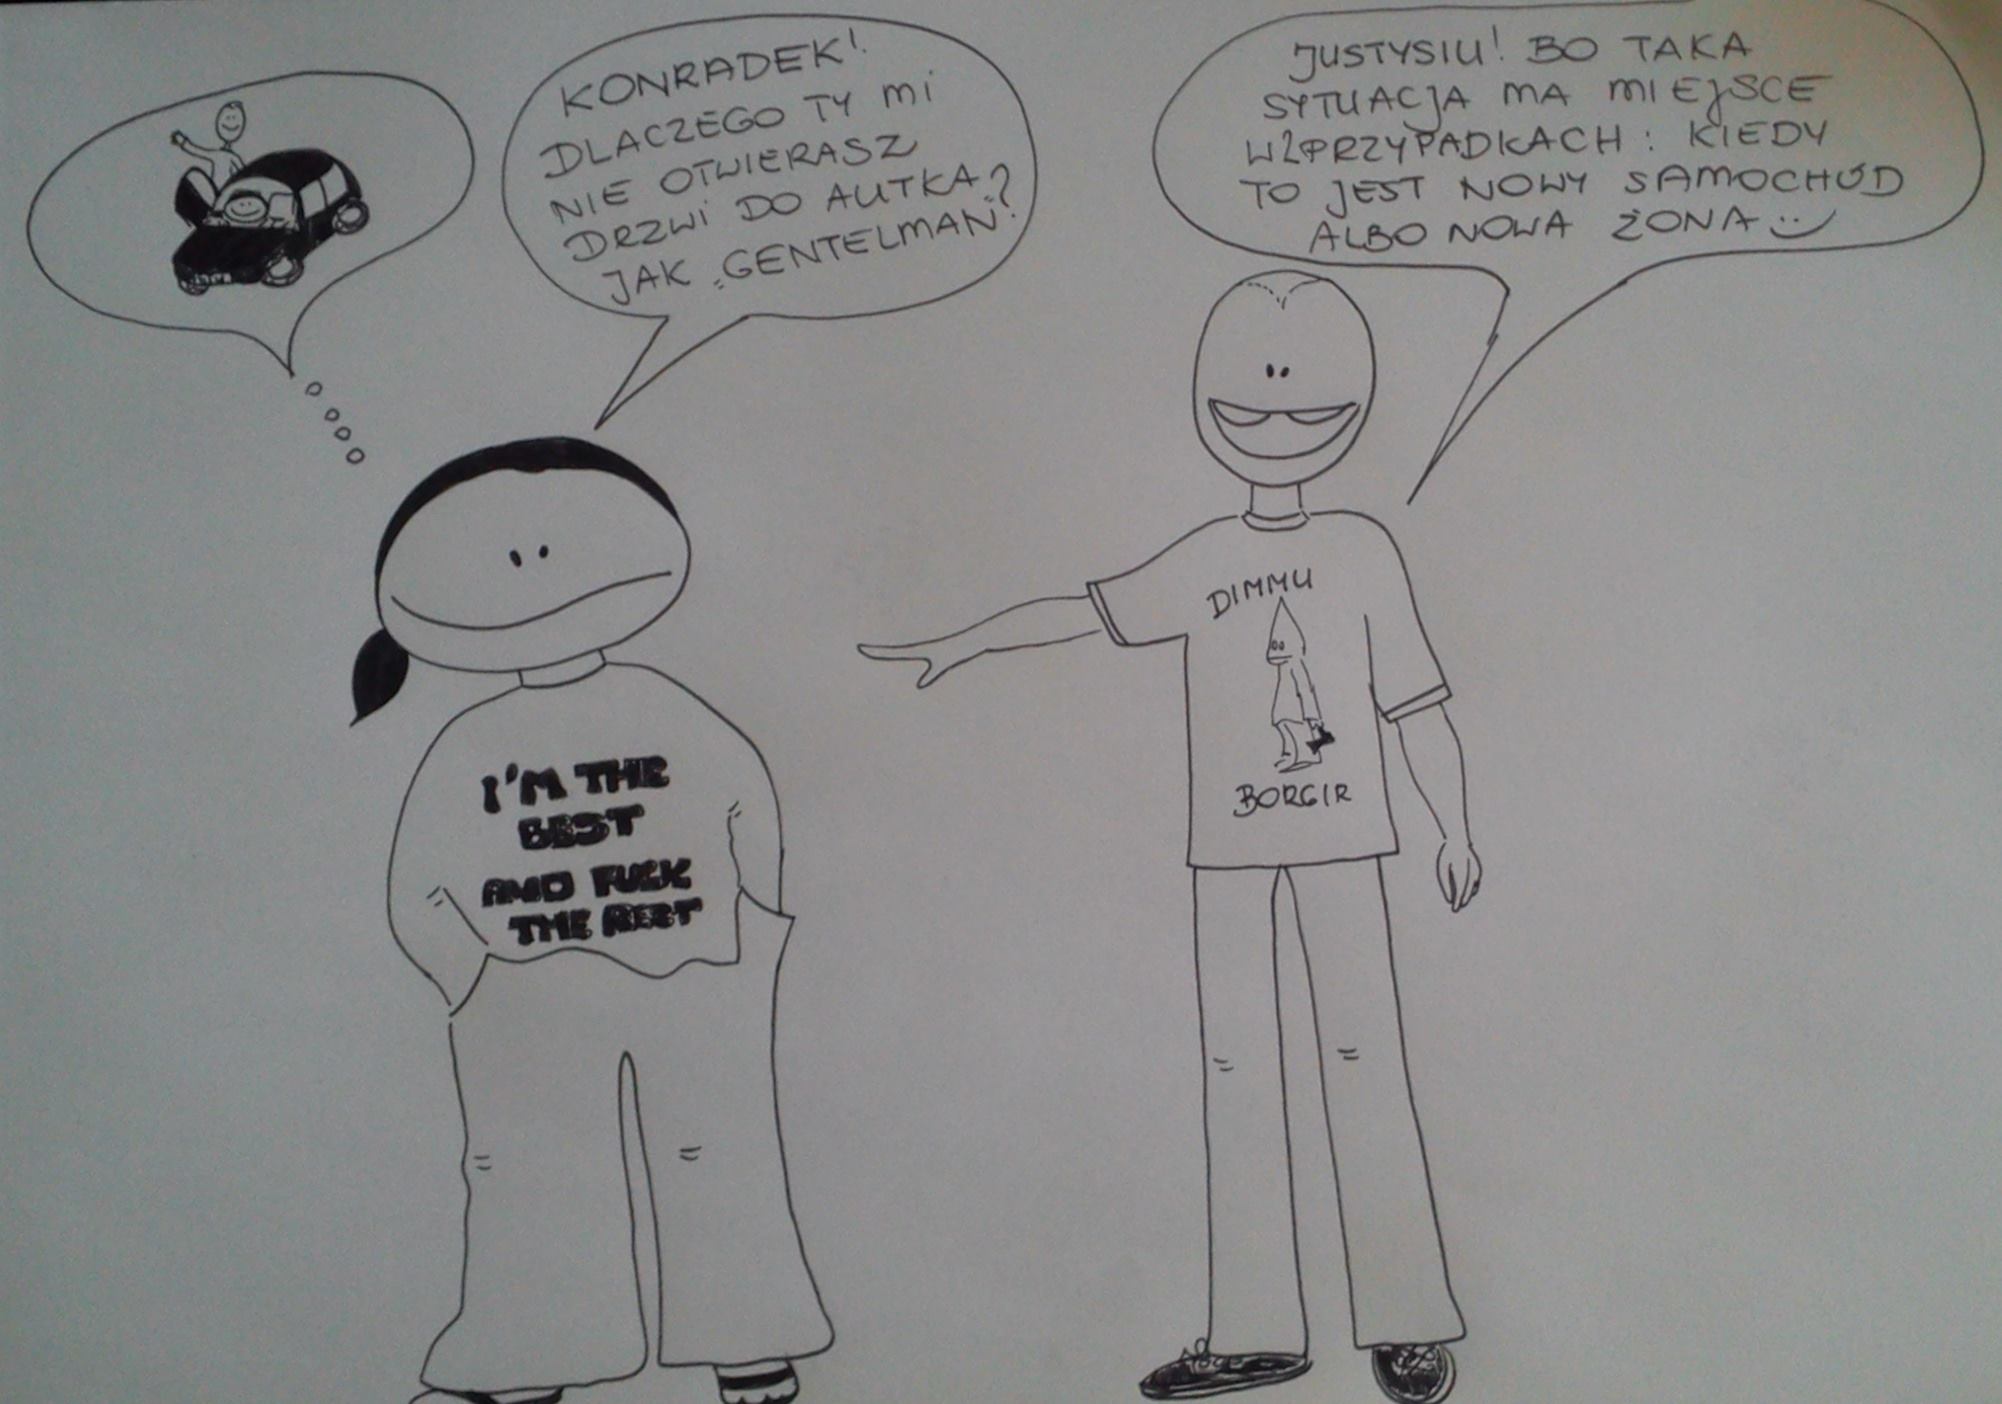 KONRADEK!
DLACZEGO TY MI
NIE OTWIERASZ
DRZWI DO AUTKA
JAK „GENTELMAN"?
JUSTYSIU! BO TAKA
SYTUACJA MA MIEJSCE
W 2 PRZYPADKACH: KIEDY
TO JEST NOWY SAMOCHÓD
ALBO NOWA ŻONA :)
I'M THE
BEST
AND FUCK
THE REST
DIMMU
BORGIR